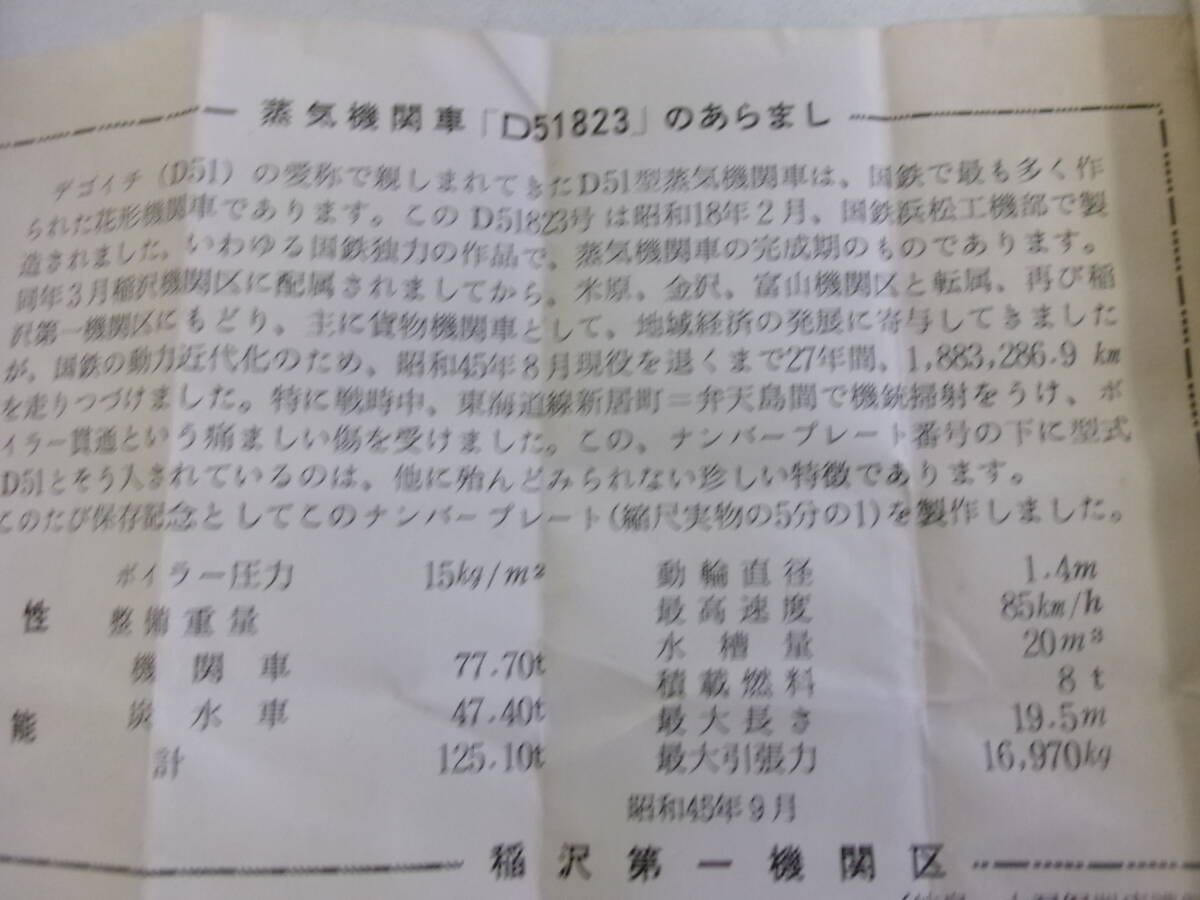 蒸気機関車「D51823」のあらまし
デゴイチ(D51)の愛称で親しまれてきたD51型蒸気機関車は、国鉄で最も多く作
られた花形機関車であります。このD51823号は昭和18年2月、国鉄浜松工機部で製
造されました。いわゆる国鉄独力の作品で、蒸気機関車の完成期のものであります。
同年3月稲沢機関区に配属されましてから、米原、金沢、富山機関区と転属、再び稲
沢第一機関区にもどり、主に貨物機関車として、地域経済の発展に寄与してきました
が、国鉄の動力近代化のため、昭和45年8月現役を退くまで27年間、1,883,286.9km
を走りつづけました。特に戦時中、東海道線新居町=弁天島間で機銃掃射をうけ、ボ
イラー貫通という痛ましい傷を受けました。この、ナンバープレート番号の下に型式
D51とそう入されているのは、他に殆んどみられない珍しい特徴であります。
このたび保存記念としてこのナンバープレート(縮尺実物の5分の1)を製作しました。
性能
ボイラー圧力 15kg/m²
整備重量
機関車 77.70t
炭水車 47.40t
計 125.10t
動輪直径 1.4m
最高速度 85km/h
水槽量 20m³
積載燃料 8t
最大長さ 19.5m
最大引張力 16,970kg
昭和45年9月
稲沢第一機関区